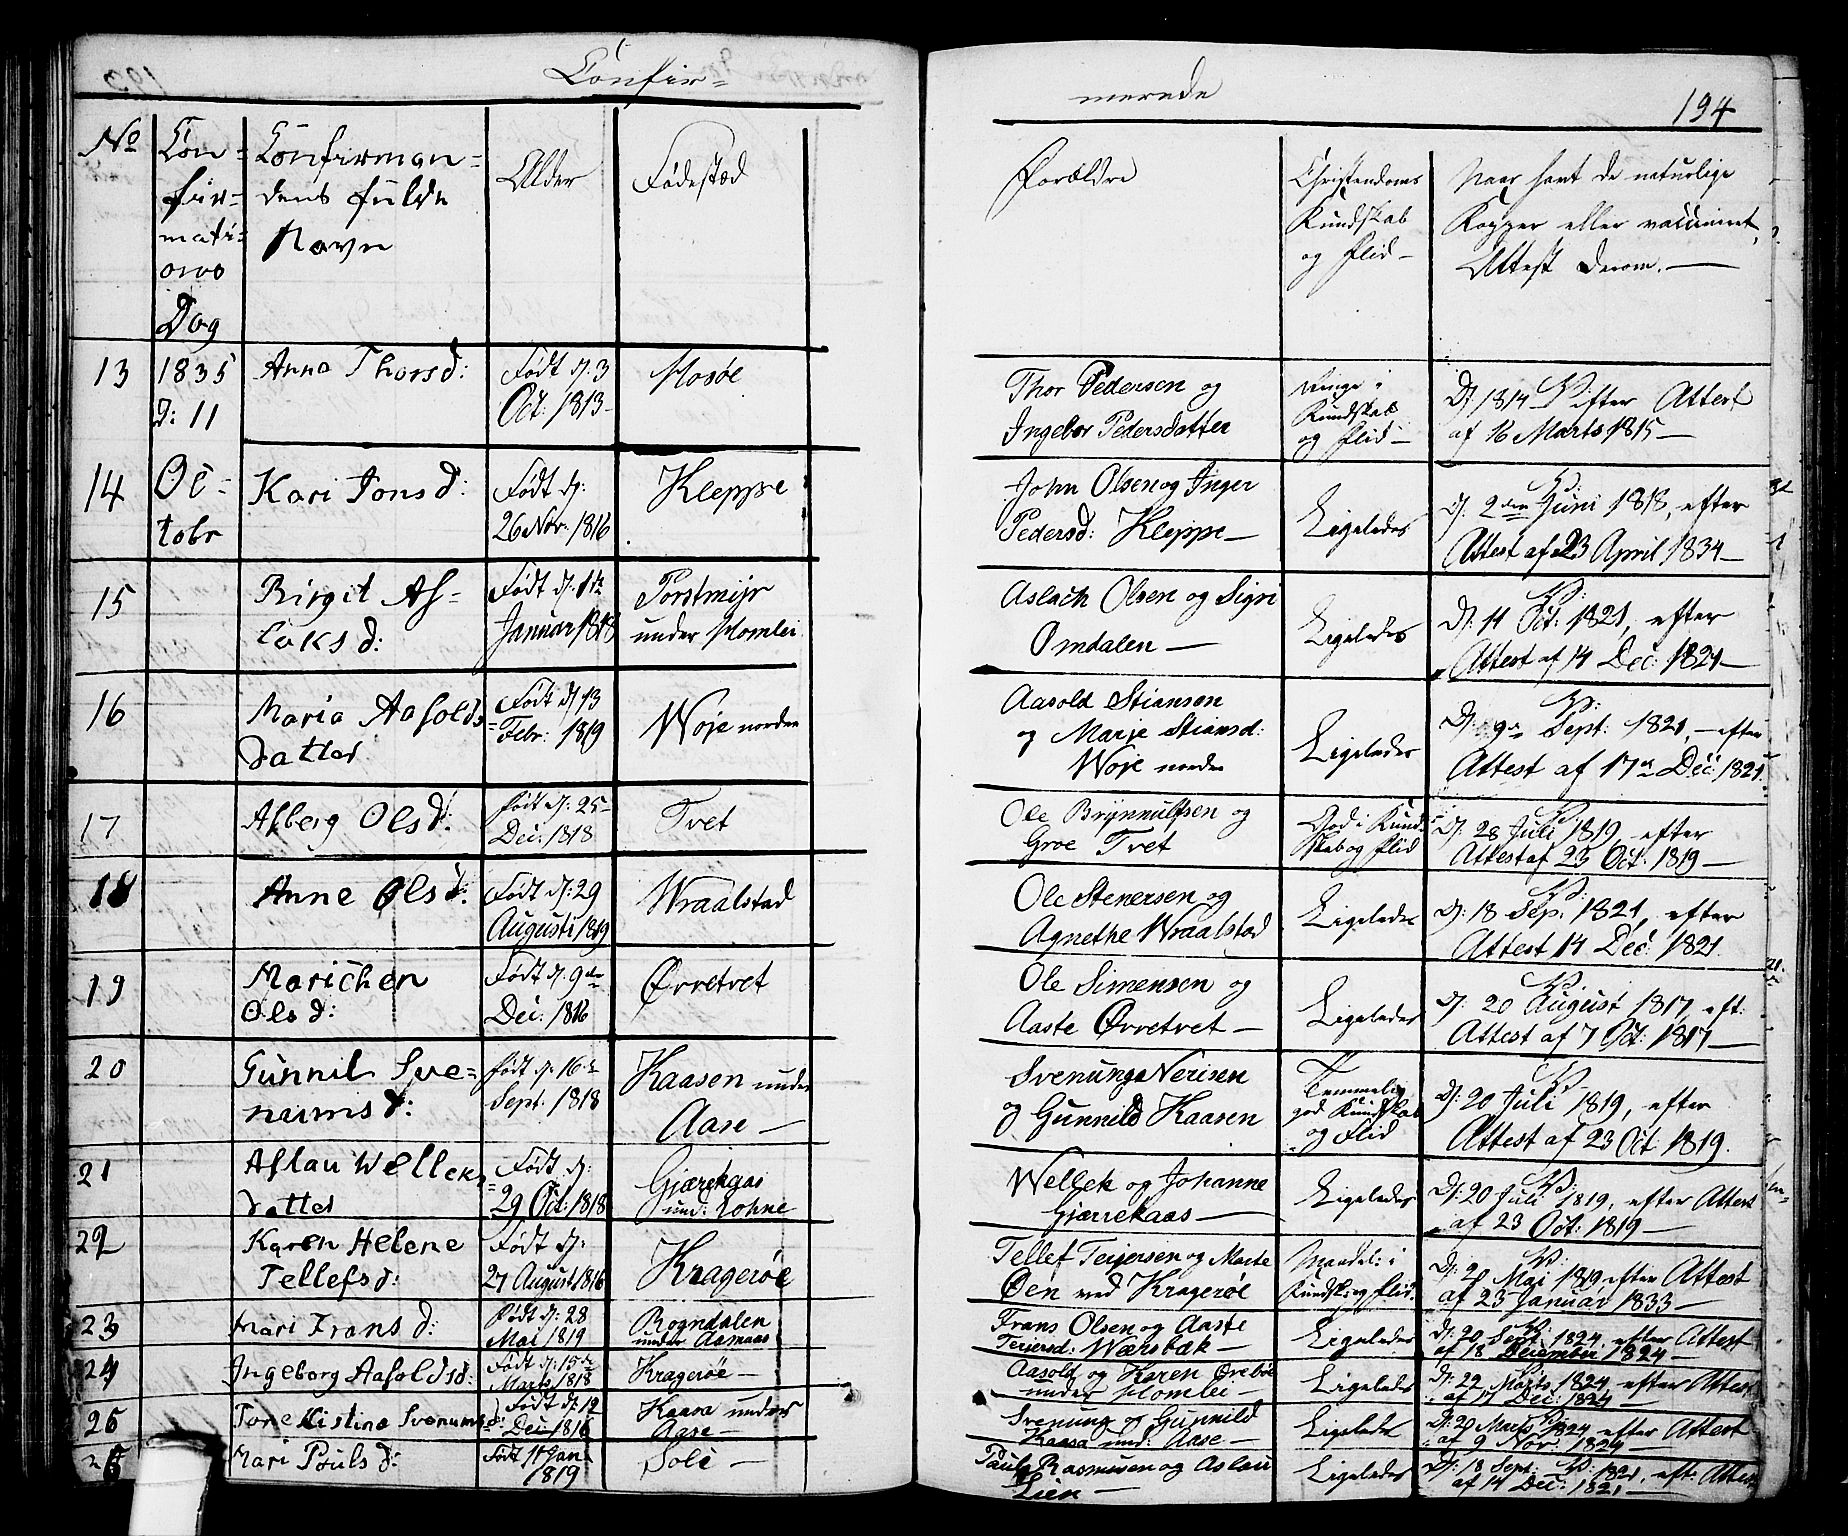 Confir=
merede
194
No
Con=
fir=
mati=
ons
Dag
Confirman=
dens fulde
Navn
Alder
Fødested
Forældre
Christendoms
Kundskab
og Flid—
Naar havt de naturlige
Kopper eller vaccineret,
Attest derom.—
13
1835
d: 11
Anna Thorsd:
Født d: 3
Oct: 1813—
Mosøe
Thor Pedersen og
Ingebor Pedersdatter
Ringe i
Kundskab
og Flid—
D: 1814 V: efter Attest
af 16 Marts 1815—
14
Oc=
tobr
Kari Jonsd:
Født d:
26 Nov: 1816
Kleppe
John Olsen og Inger
Pedersd: Kleppe—
Ligeledes
V:
D: 2den Juni 1818, efter
Attest af 23 April 1834—
15
Birgit As=
laksd:
Født d: 1te
Januar 1818
Porstmyr
under Homlei
Aslach Olsen og Sigri
Omdalen—
Ligeledes
V:
D: 11 Oct: 1821, efter
Attest af 14 Dec: 1821—
16
Maria Aasolds=
datter
Født d: 13
Febr: 1819
Woje norden
Aasold Stiansen
og Marje Stiansd:
Woje norden
Ligeledes
V:
D: 9 Sept: 1821,—efter
Attest af 17 Dec: 1821.
17
Asberg Olsd:
Født d: 25
Dec: 1818
Tvet
Ole Brynnulfsen og
Groe Tvet
God i Kund=
skab og Flid
V:
D: 28 Juli 1819, efter
Attest af 23 Oct: 1819—
18
Anne Olsd:
Født d: 29
Augusti 1819
Wraalstad
Ole Stenersen og
Agnethe Wraalstad
Ligeledes
V:
D: 18 Sep: 1821, efter
Attest 14 Dec: 1821.
19
Marichen
Olsd:
Født d: 9de
Dec: 1816
Øvretvet
Ole Simensen og
Aaste Øvretvet—
Ligeledes
V:
D: 20 August 1817, eft:
Attest af 7 Oct: 1817—
20
Gunnil Sve=
numsd:
Født d: 16
Sept. 1818
Kaasen under
Aase—
Svenung Nerisen
og Gunnild Kaasen
Temmelig
god Kundskab
og Flid
V:
D: 20 Juli 1819, efter
Attest af 23 Oct: 1819.
21
Aslau Welleks=
datter
Født d:
29 Oct: 1818
Gjærekaas
und: Lohne
Wellek og Johanne
Gjærrekaas—
Ligeledes
V:
D: 20 Juli 1819, efter Attest
af 23 Oct: 1819—
22
Karen Helene
Tellefsd:
Født d:
27 August 1816
Kragerøe
Tellef Teijersen og Marte
Øen ved Kragerøe
Maadel: i
Kundsk: og Flid.
V:
D: 20 Mai 1819 efter Attest
af 23 Januar 1833—
23
Mari Fransd:
Født d: 28
Mai 1819
Rogndalen
under Aasmaas
Frans Olsen og Aaste
Teijersd: Wærsbæk—
Ligeledes
V:
D: 20 Sept: 1824 efter Attest
af 18 December 1824—
24
Ingeborg Aasoldsd:
Født d: 15de
Marts 1818
Kragerøe—
Aasold og Karen Ørebøe
under Homlei—
Ligeledes
V:
D: 22 Marts 1824 efter Attest
af 17 Dec: 1824—
25
Tone Kistina Svenumsd:
Født d: 12
Dec: 1816
Kaasa under
Aase—
Svenung og Gunnild
Kaasa und: Aase—
Ligeledes
V:
D: 20 Marts 1824 efter Attest
af 9 Nov: 1824—
26
Mari Poulsd:
Født 11 Jan:
1819
Soli—
Paul Rasmusen og Aslau
Lien—
Ligeledes
V:
D: 18 Sept: 1821, eft: Attest
af 14 Dec: 1821—